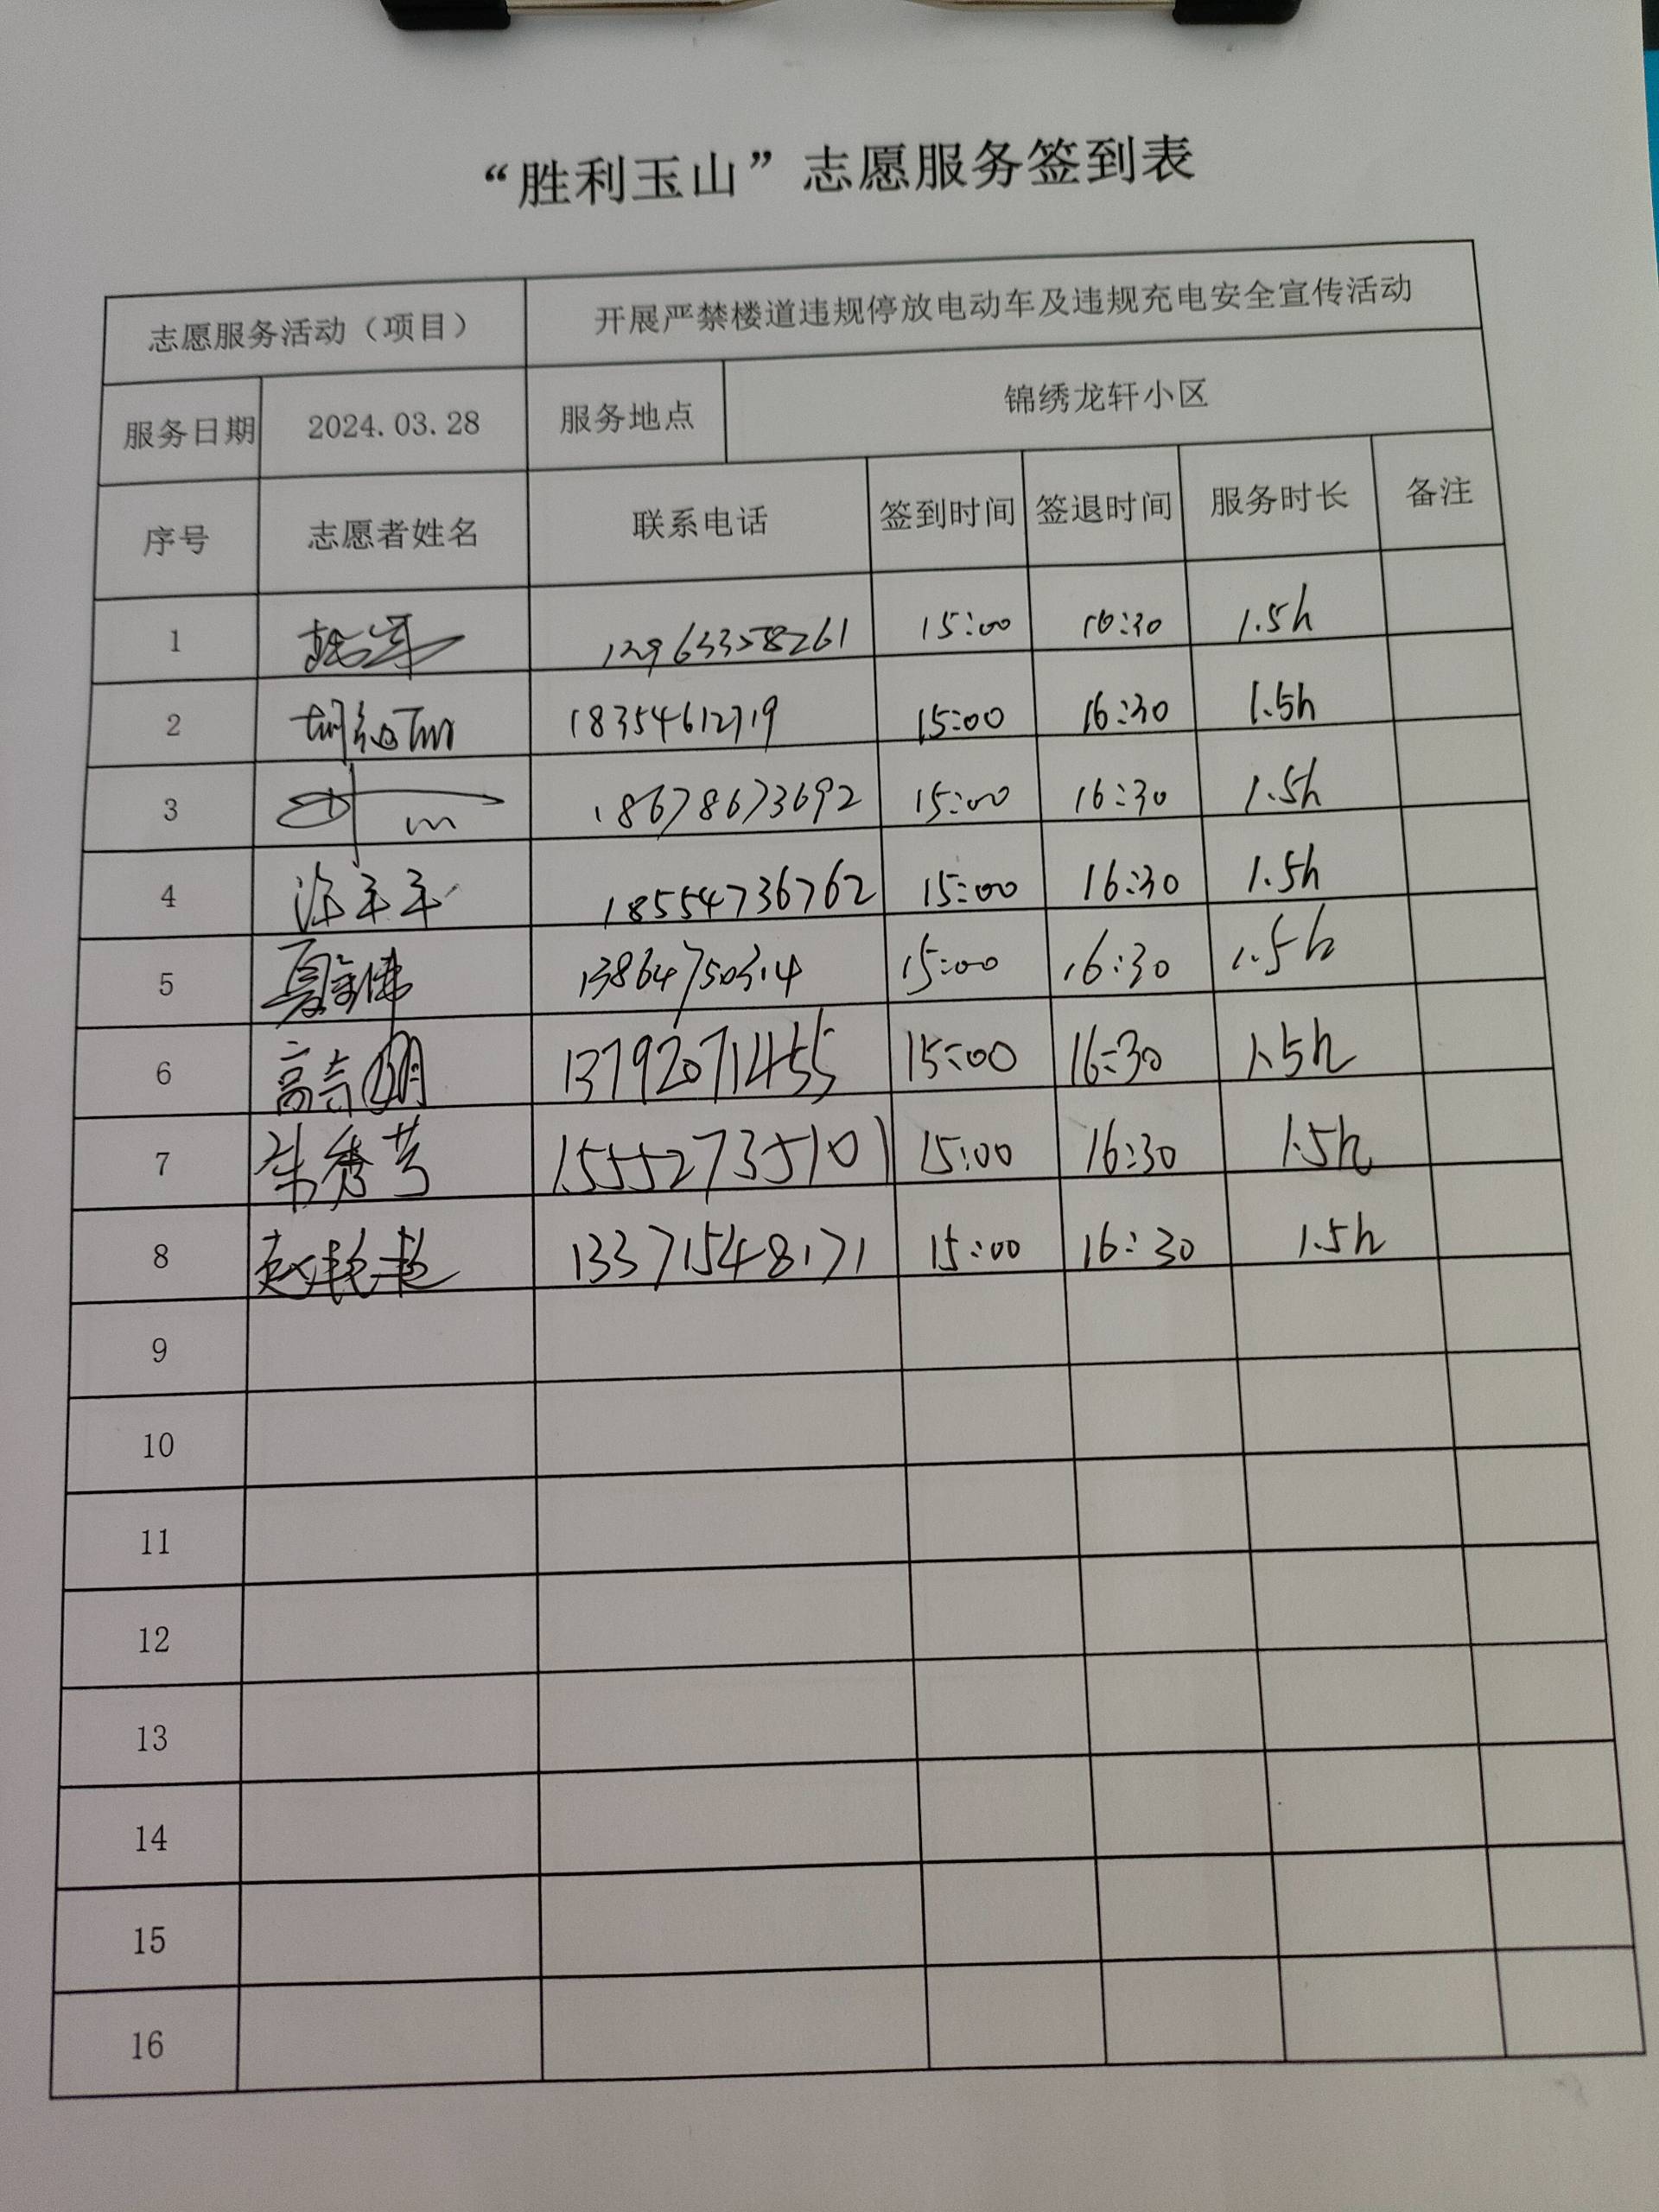 “胜利玉山”志愿服务签到表
志愿服务活动（项目） 开展严禁楼道违规停放电动车及违规充电安全宣传活动
服务日期 2024.03.28 服务地点 锦绣龙轩小区
序号 志愿者姓名 联系电话 签到时间 签退时间 服务时长 备注
1 12963358261 15:00 16:30 1.5h
2 18354612719 15:00 16:30 1.5h
3 18678673692 15:00 16:30 1.5h
4 18554736762 15:00 16:30 1.5h
5 13864750314 15:00 16:30 1.5h
6 13792071455 15:00 16:30 1.5h
7 朱秀芳 15552735101 15:00 16:30 1.5h
8 赵艳艳 13371548171 15:00 16:30 1.5h
9
10
11
12
13
14
15
16